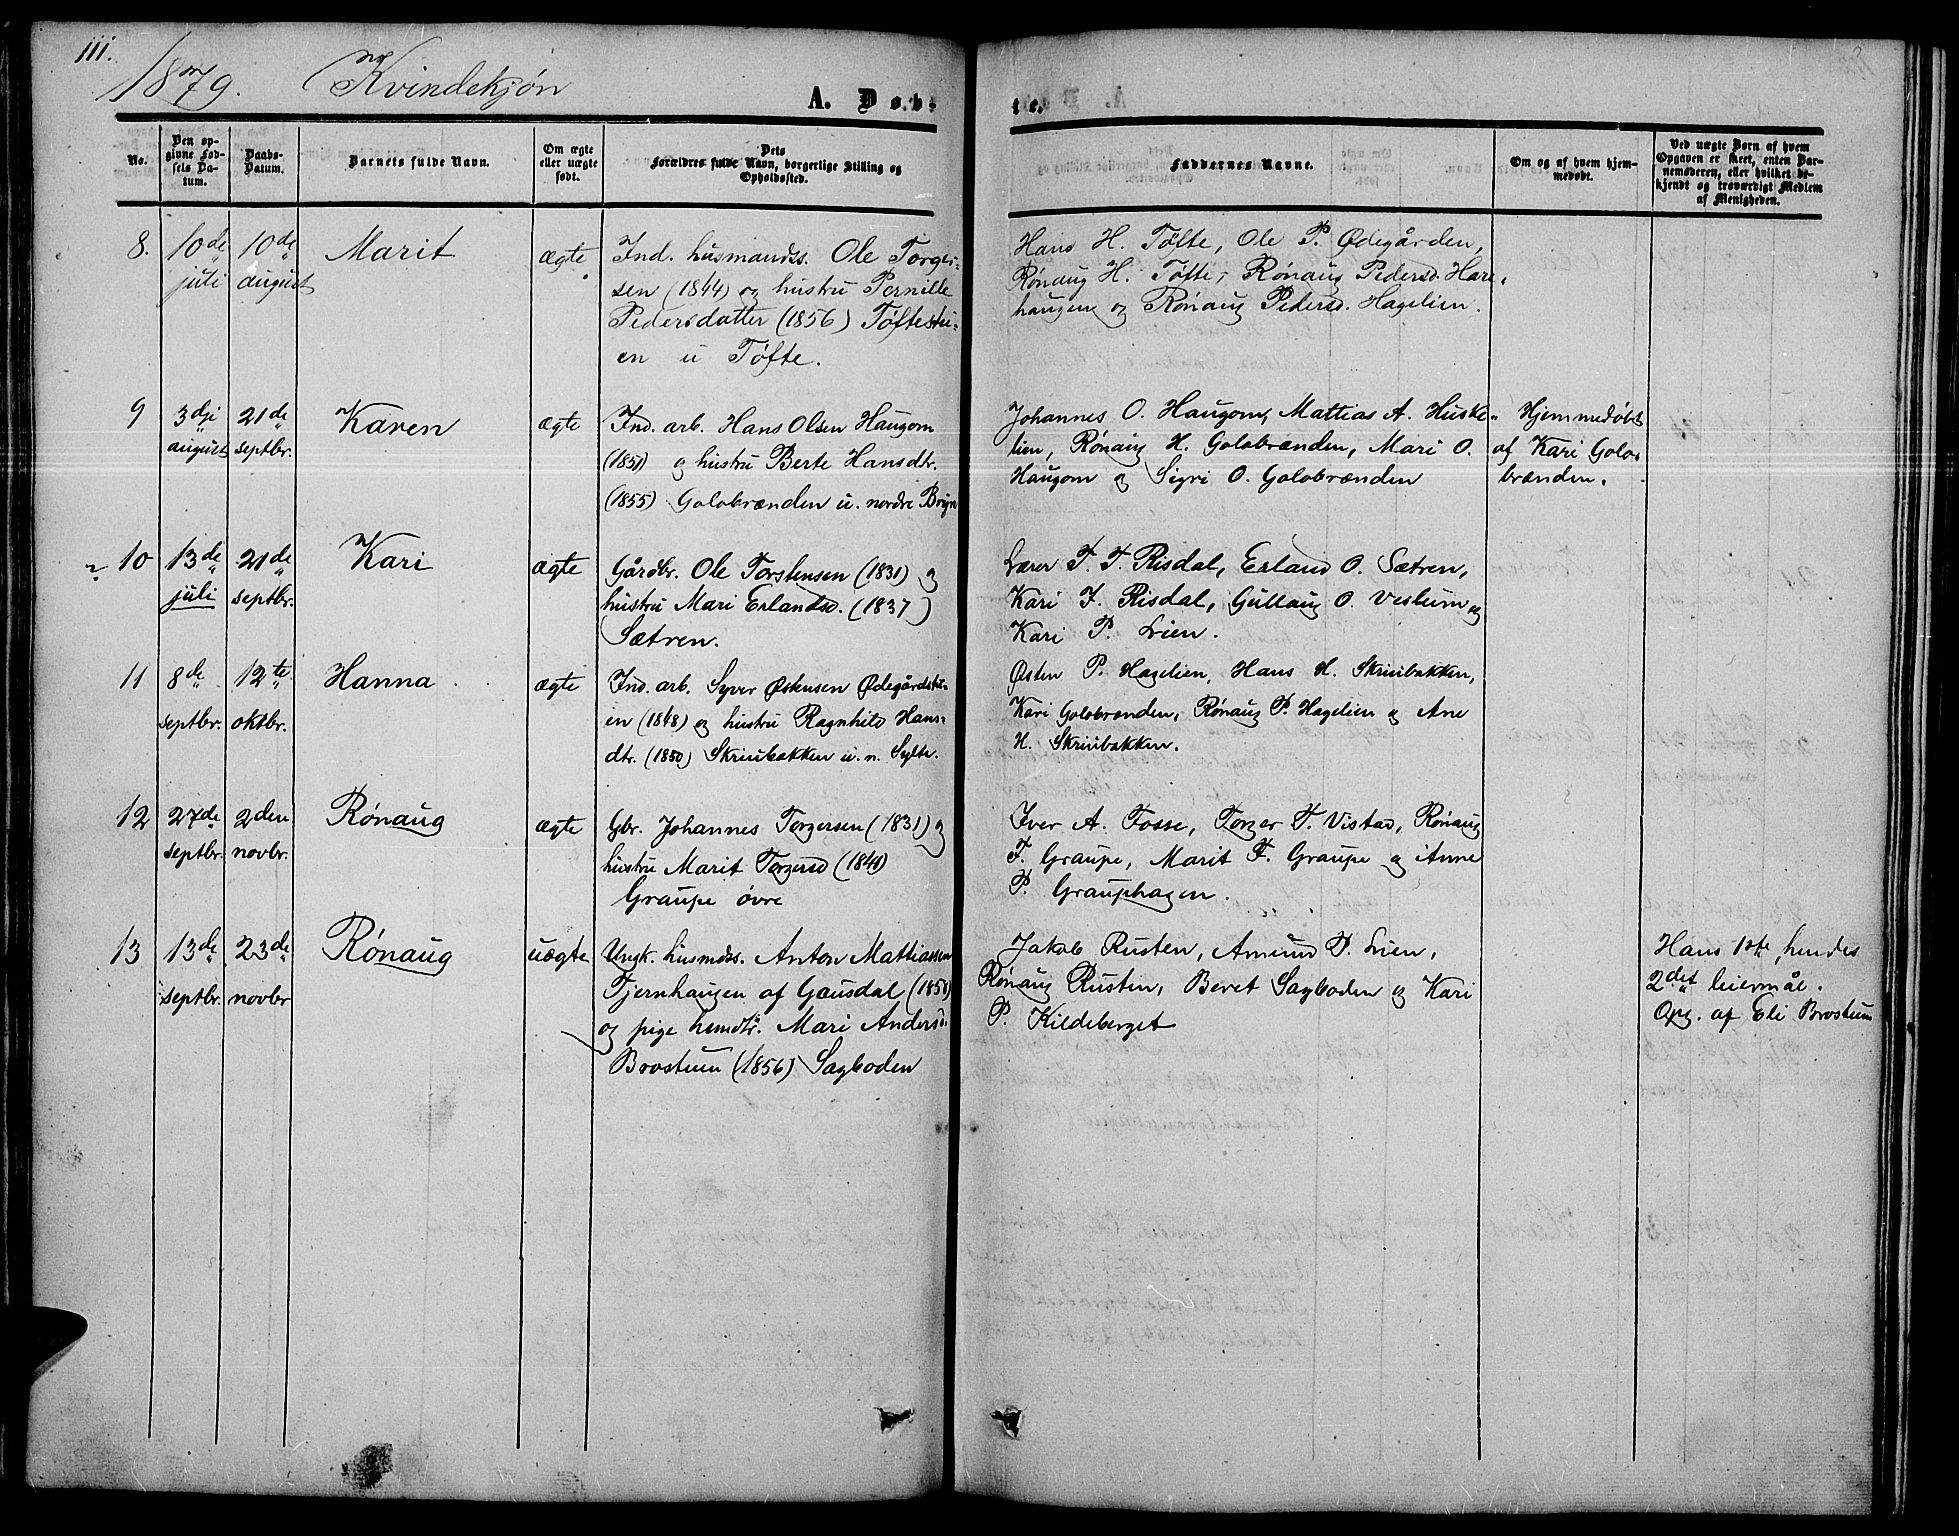 111.
1879. Kvindekjøn
A. Døb-
te.
No.
Den op-
givne Fød-
sels Da-
tum.
Daabs-
Datum.
Barnets fulde Navn.
Om ægte
eller uægte
født.
Dets
Forældres fulde Navn, borgerlige Stilling og
Opholdssted.
Faddernes Navne.
Om og af hvem hjem-
medøbt.
Ved uægte Børn af hvem
Opgaven er skeet, enten Bar-
nemoderen, eller hvilket be-
kjendt og troværdigt Medlem
af Menigheden.
8.
10de
juli
10de
august
Marit
ægte
Ind. husmandss. Ole Torger-
sen (1844) og hustru Pernille
Pedersdatter (1856) Tøftestu-
en u Tøfte.
Hans H. Tøfte, Ole P. Ødegården,
Rønaug H. Tøfte, Rønaug Pedersd. Hare-
haugen og Rønaug Pedersd. Hagelien.
9
3dji
august
21de
septbr.
Karen
ægte
Ind. arb. Hans Olsen Haugom
(1851) og hustru Berte Hansdtr.
(1855) Golobrænden u. nordre Bryn
Johannes O. Haugom, Mattias A. Huske-
lien, Rønaug H. Golobrænden, Mari O.
Haugom og Sigri O. Golobrænden
Hjemmedøbt
af Kari Golo-
brænden.
10
13de
juli
21de
septbr.
Kari
ægte
Gårdbr. Ole Torstensen (1831) og
hustru Mari Erlandsd. (1837)
Sætren.
Lærer T. T. Risdal, Erland O. Sætren,
Kari J. Risdal, Gullaug O. Veslum og
Kari P. Lien.
11
8de
septbr.
12te
oktbr.
Hanna
ægte
Ind. arb. Syver Østensen Ødegårdstu-
en (1848) og hustru Ragnhild Hans-
dtr. (1850) Skriubakken u. n. Sylte.
Østen P. Hagelien, Hans H. Skriubakken,
Kari Golobrænden, Rønaug P. Hagelien og Ane
H. Skriubakken.
12
27de
septbr.
2den
novbr.
Rønaug
ægte
Gbr. Johannes Torgersen (1831) og
hustru Marit Torgersd (1844)
Graupe øvre
Iver A. Fosse, Torger T. Vistad, Rønaug
F. Graupe, Marit F. Graupe og Anne
P. Grauphagen.
13
13de
septbr.
23de
novbr
Rønaug
uægte
Ungk. husmdss. Anton Mattiassen
Tjernhaugen af Gausdal (1858)
og pige hsmdtr. Mari Andersd.
Brostuen (1856) Sagboden
Jakob Rusten, Amund P. Lien,
Rønaug Rusten, Beret Sagboden og Kari
P. Kildeberget
Hans 1ste, hendes
2det leiermål.
Opg. af Eli Brostuen